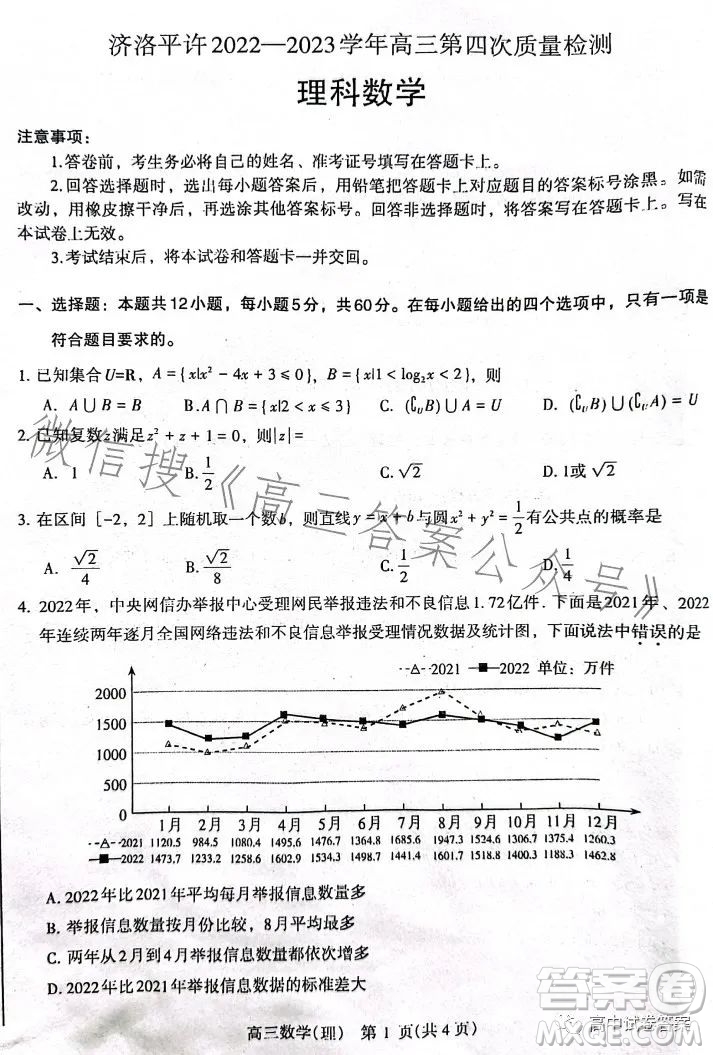 济洛平许2022—2023学年高三第四次质量检测
理科数学
注意事项：
1.答卷前，考生务必将自己的姓名、准考证号填写在答题卡上。
2.回答选择题时，选出每小题答案后，用铅笔把答题卡上对应题目的答案标号涂黑。如需
改动，用橡皮擦干净后，再选涂其他答案标号。回答非选择题时，将答案写在答题卡上。写在
本试卷上无效。
3.考试结束后，将本试卷和答题卡一并交回。
一、选择题：本题共12小题，每小题5分，共60分。在每小题给出的四个选项中，只有一项是
符合题目要求的。
1. 已知集合U=R，A={x|x²-4x+3⩽0}，B={x|1<log₂x<2}，则
A. A∪B=B B.A∩B={x|2<x⩽3} C. (∁ᵤB)∪A=U D. (∁ᵤB)∪(∁ᵤA)=U
2. 已知复数z满足z²+z+1=0，则|z|=
A. 1 B. 1/2 C. √2 D. 1或√2
3. 在区间［-2，2］上随机取一个数b，则直线y=x+b与圆x²+y²=1/2有公共点的概率是
A. √2/4 B. √2/8 C. 1/2 D. 1/4
4. 2022年，中央网信办举报中心受理网民举报违法和不良信息1.72亿件．下面是2021年、2022
年连续两年逐月全国网络违法和不良信息举报受理情况数据及统计图，下面说法中错误的是
2021 2022 单位：万件
2000
1500
1000
500
0
1月 2月 3月 4月 5月 6月 7月 8月 9月 10月 11月 12月
2021 1120.5 984.5 1080.4 1495.6 1476.7 1364.8 1685.6 1947.3 1524.6 1306.7 1375.4 1260.3
2022 1473.7 1233.2 1258.6 1602.9 1534.3 1498.7 1441.4 1601.7 1518.8 1400.3 1188.3 1462.8
A. 2022年比2021年平均每月举报信息数量多
B. 举报信息数量按月份比较，8月平均最多
C. 两年从2月到4月举报信息数量都依次增多
D. 2022年比2021年举报信息数据的标准差大
高三数学(理) 第 1 页(共4页)
微信搜《高三答案公众号》
高中试卷答案
答案圈
MXQE.COM